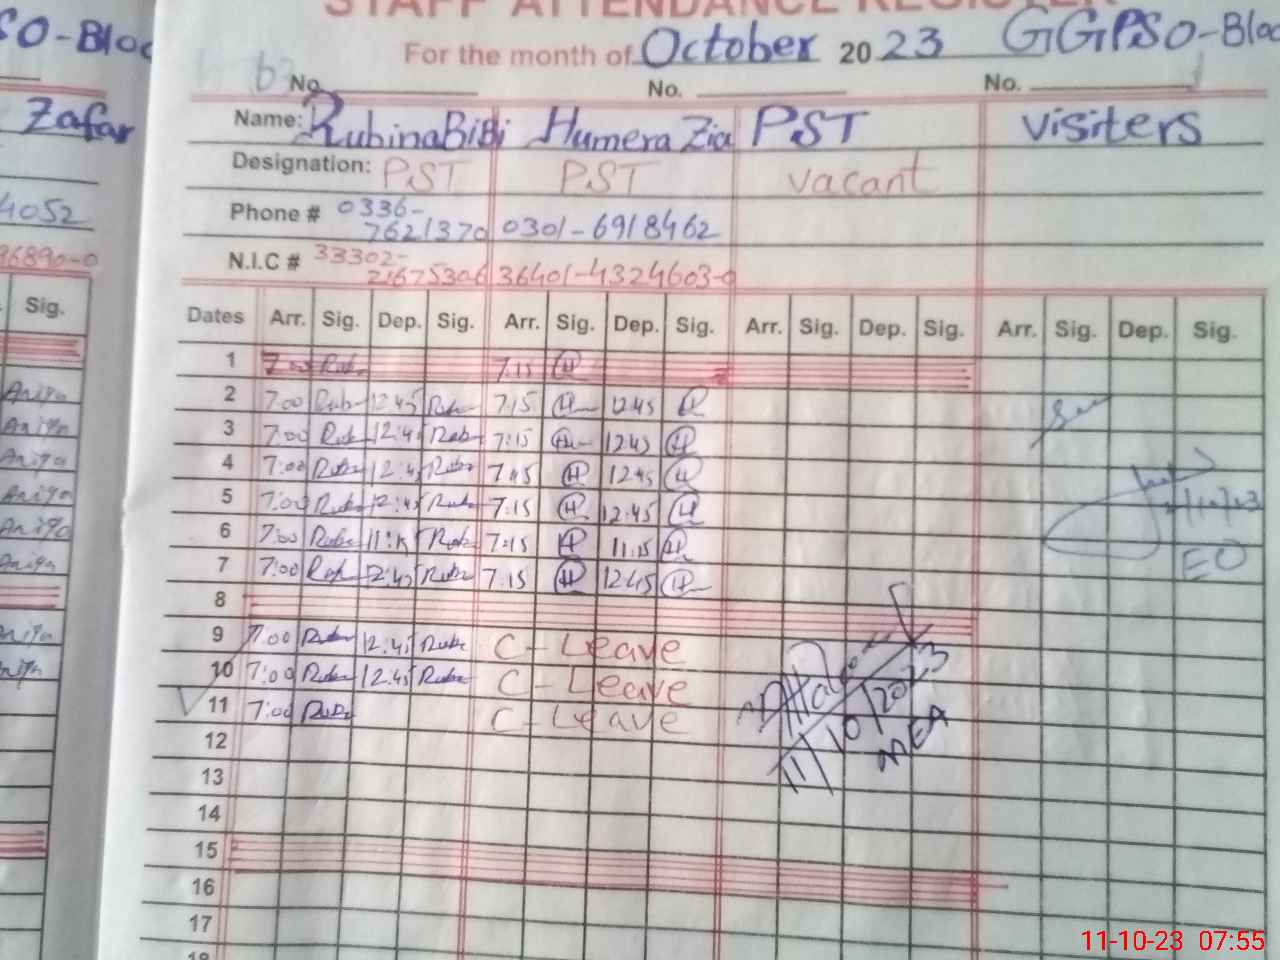 STAFF ATTENDANCE REGISTER
For the month of October 2023 GGPSO-Bloc
SO-Bloc
No. No. No.
Zafar
Name: Rubina BiBi Humera Zia PST visiters
Designation: PST PST vacant
4052
Phone # 0336-7621370 0301-6918462
96890-0
N.I.C # 33302-21675306 36401-4324603-0
Sig.
Dates Arr. Sig. Dep. Sig. Arr. Sig. Dep. Sig. Arr. Sig. Dep. Sig. Arr. Sig. Dep. Sig.
1 7:00 Rub 7.15 H
2 7:00 Rub 12:45 Rub 7:15 H 12:45 H
3 7:00 Rub 12:45 Rub 7:15 H 12:45 H
4 7:00 Rub 12:45 Rub 7:15 H 12:45 H
5 7:00 Rub 12:45 Rub 7:15 H 12:45 H
6 7:00 Rub 11:15 Rub 7:15 H 11:15 H
EO
7 7:00 Rub 12:45 Rub 7:15 H 12:45 H
8
9 7:00 Rub 12:45 Rub C-Leave
10 7:00 Rub 12:45 Rub C-Leave
11 7:00 Rub C-Leave
11/10/2023
MEA
12
13
14
15
16
17
18
11-10-23 07:55